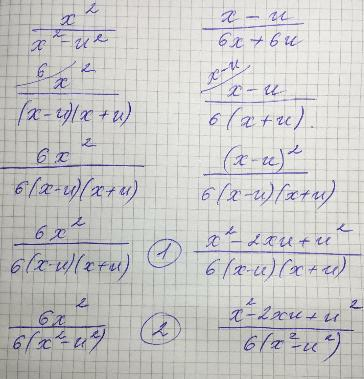 x²/(x²-u²) (x-u)/(6x+6u)
6 x²/((x-u)(x+u)) x-u (x-u)/(6(x+u)).
6x²/(6(x-u)(x+u)) (x-u)²/(6(x-u)(x+u))
6x²/(6(x-u)(x+u)) 1 (x²-2xu+u²)/(6(x-u)(x+u))
6x²/(6(x²-u²)) 2 (x²-2xu+u²)/(6(x²-u²))